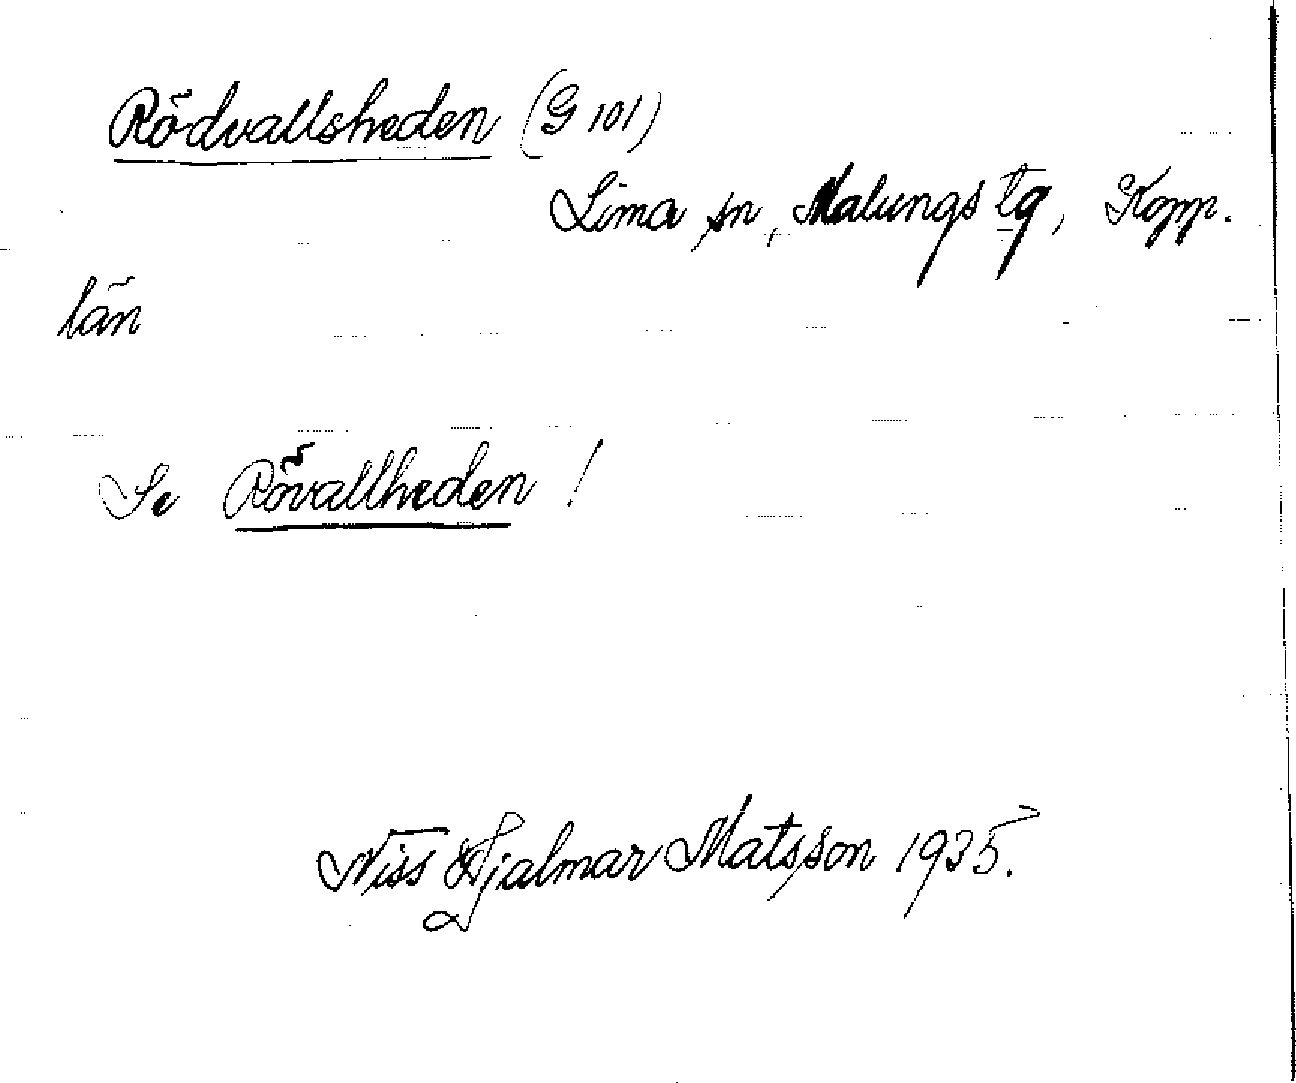 Rödvallsheden (G 101)
Lima sn, Malungs tg, Kopp.
län
Se Rövallheden !
Niss Hjalmar Matsson 1935.